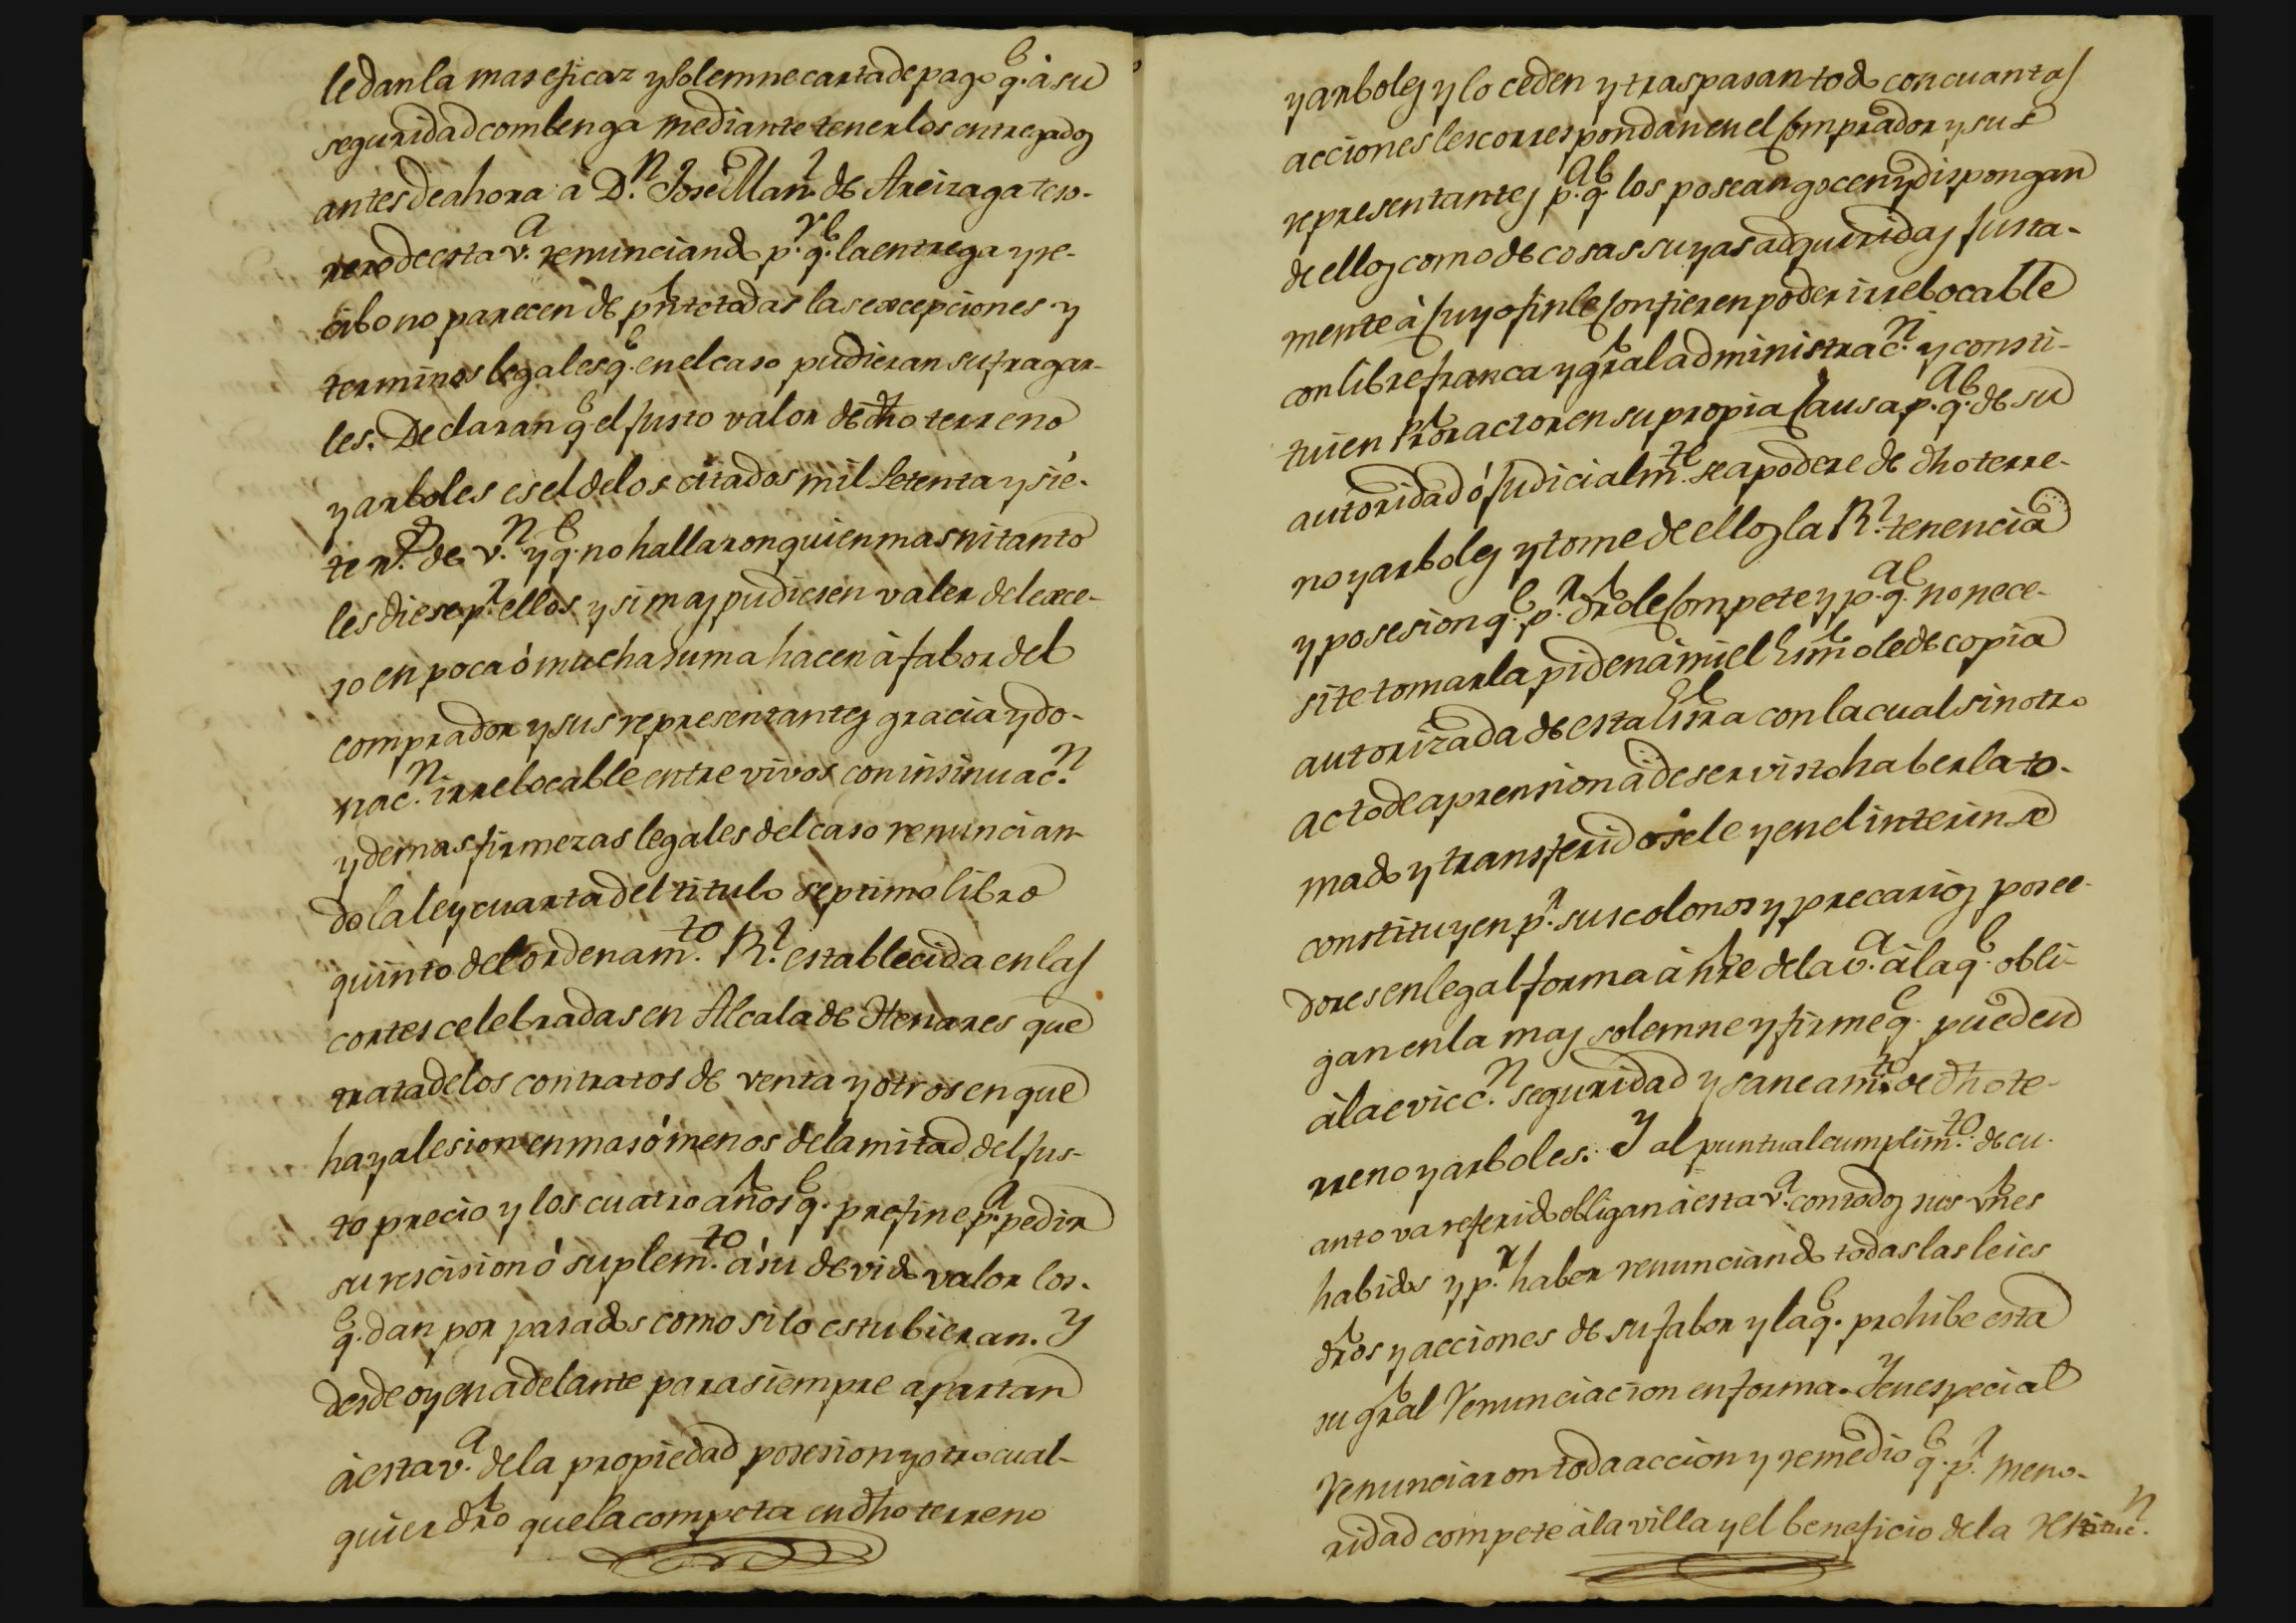 le dan la mas eficaz y solemne carta de pago q.e à su
seguridad combenga mediante tenerlos entregados
antes de ahora à D.n José Man.l de Areizaga teso-
rero de esta v.a renunciando p.r q.e la entrega y re-
cibo no parecen de pnte todas las excepciones y
terminos legales q.e en el caso pudieran sufragar-
les. Declaran q.e el justo valor de dho terreno
y arboles es el de los citados mil setenta y sie-
te r.s de v.n y q.e no hallaron quien mas ni tanto
les diese p.r ellos y si mas pudiesen valer del exce-
so en poca ó mucha suma hacen à fabor del
comprador y sus representantes gracia y do-
nac.n irrebocable entre vivos con insinuac.n
y demas firmezas legales del caso renuncian-
do la ley cuarta del titulo septimo libro
quinto del ordenam.to R.l establecida en las
cortes celebradas en Alcala de Henares que
trata de los contratos de venta y otros en que
haya lesion en mas ó menos de la mitad del jus-
to precio y los cuatro años q.e prefine p.a pedir
su rescision ó suplem.to à su devido valor los-
q.e dan por pasados como si lo estubieran. Y
desde oy en adelante para siempre apartan
à esta v.a de la propiedad posesion y otro cual-
quier dro que la competa en dho terreno
y arboles y lo ceden y traspasan todo con cuantas
acciones les correspondan en el comprador y sus
representantes p.a q.e los posean gocen y dispongan
de ellos como de cosas suyas adquiridas justa-
mente à cuyo fin le confieren poder irrebocable
con libre franca y gral administrac.n y consti-
tuien Pror actor en su propia causa p.a q.e de su
autoridad ó judicialm.te se apodere de dho terre-
no y arboles y tome de ellos la R.l tenencia
y posesion q.e p.r dro le compete y p.a q.e no nece-
site tomarla piden à mi el Essno le de copia
autorizada de esta Essra con la cual sin otro
acto de aprension à de ser visto haberla to-
mado y transferidosele y en el interin se
constituyen p.r sus colonos y precarios posee-
dores en legal forma à nre de la v.a à la q.e obli-
gan en la mas solemne y firme q.e pueden
à la evicc.n seguridad y saneam.to de dho te-
rreno y arboles. Y al puntual cumplim.to de cu-
anto va referido obligan à esta v.a con todos sus vnes
habidos y p.r haber renunciando todas las leies
dros y acciones de su fabor y la q.e prohibe esta
su gral renunciacion en forma. Y en especial
renunciaron toda accion y remedio q.e p.r meno-
ridad compete à la villa y el beneficio de la restituc.n